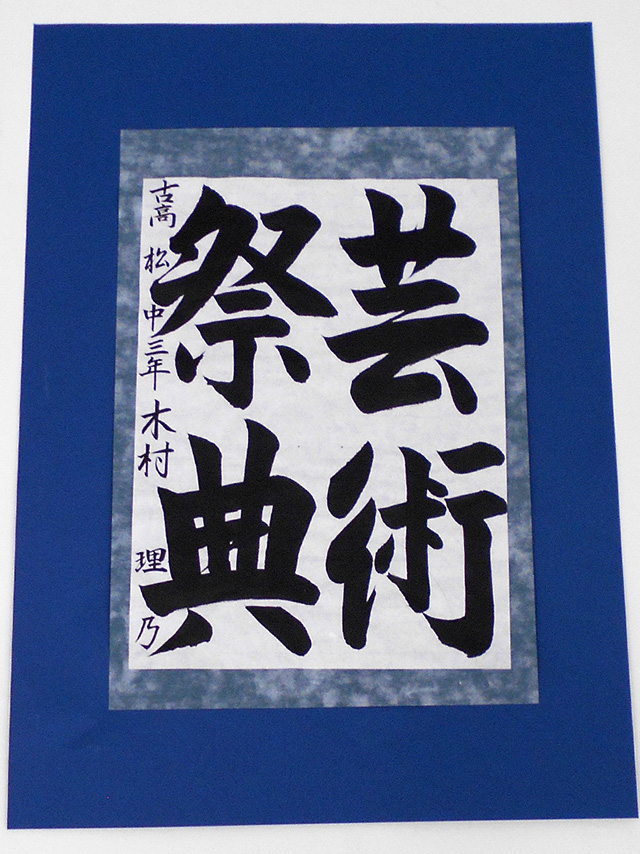 芸術
祭典
古高松中三年 木村理乃